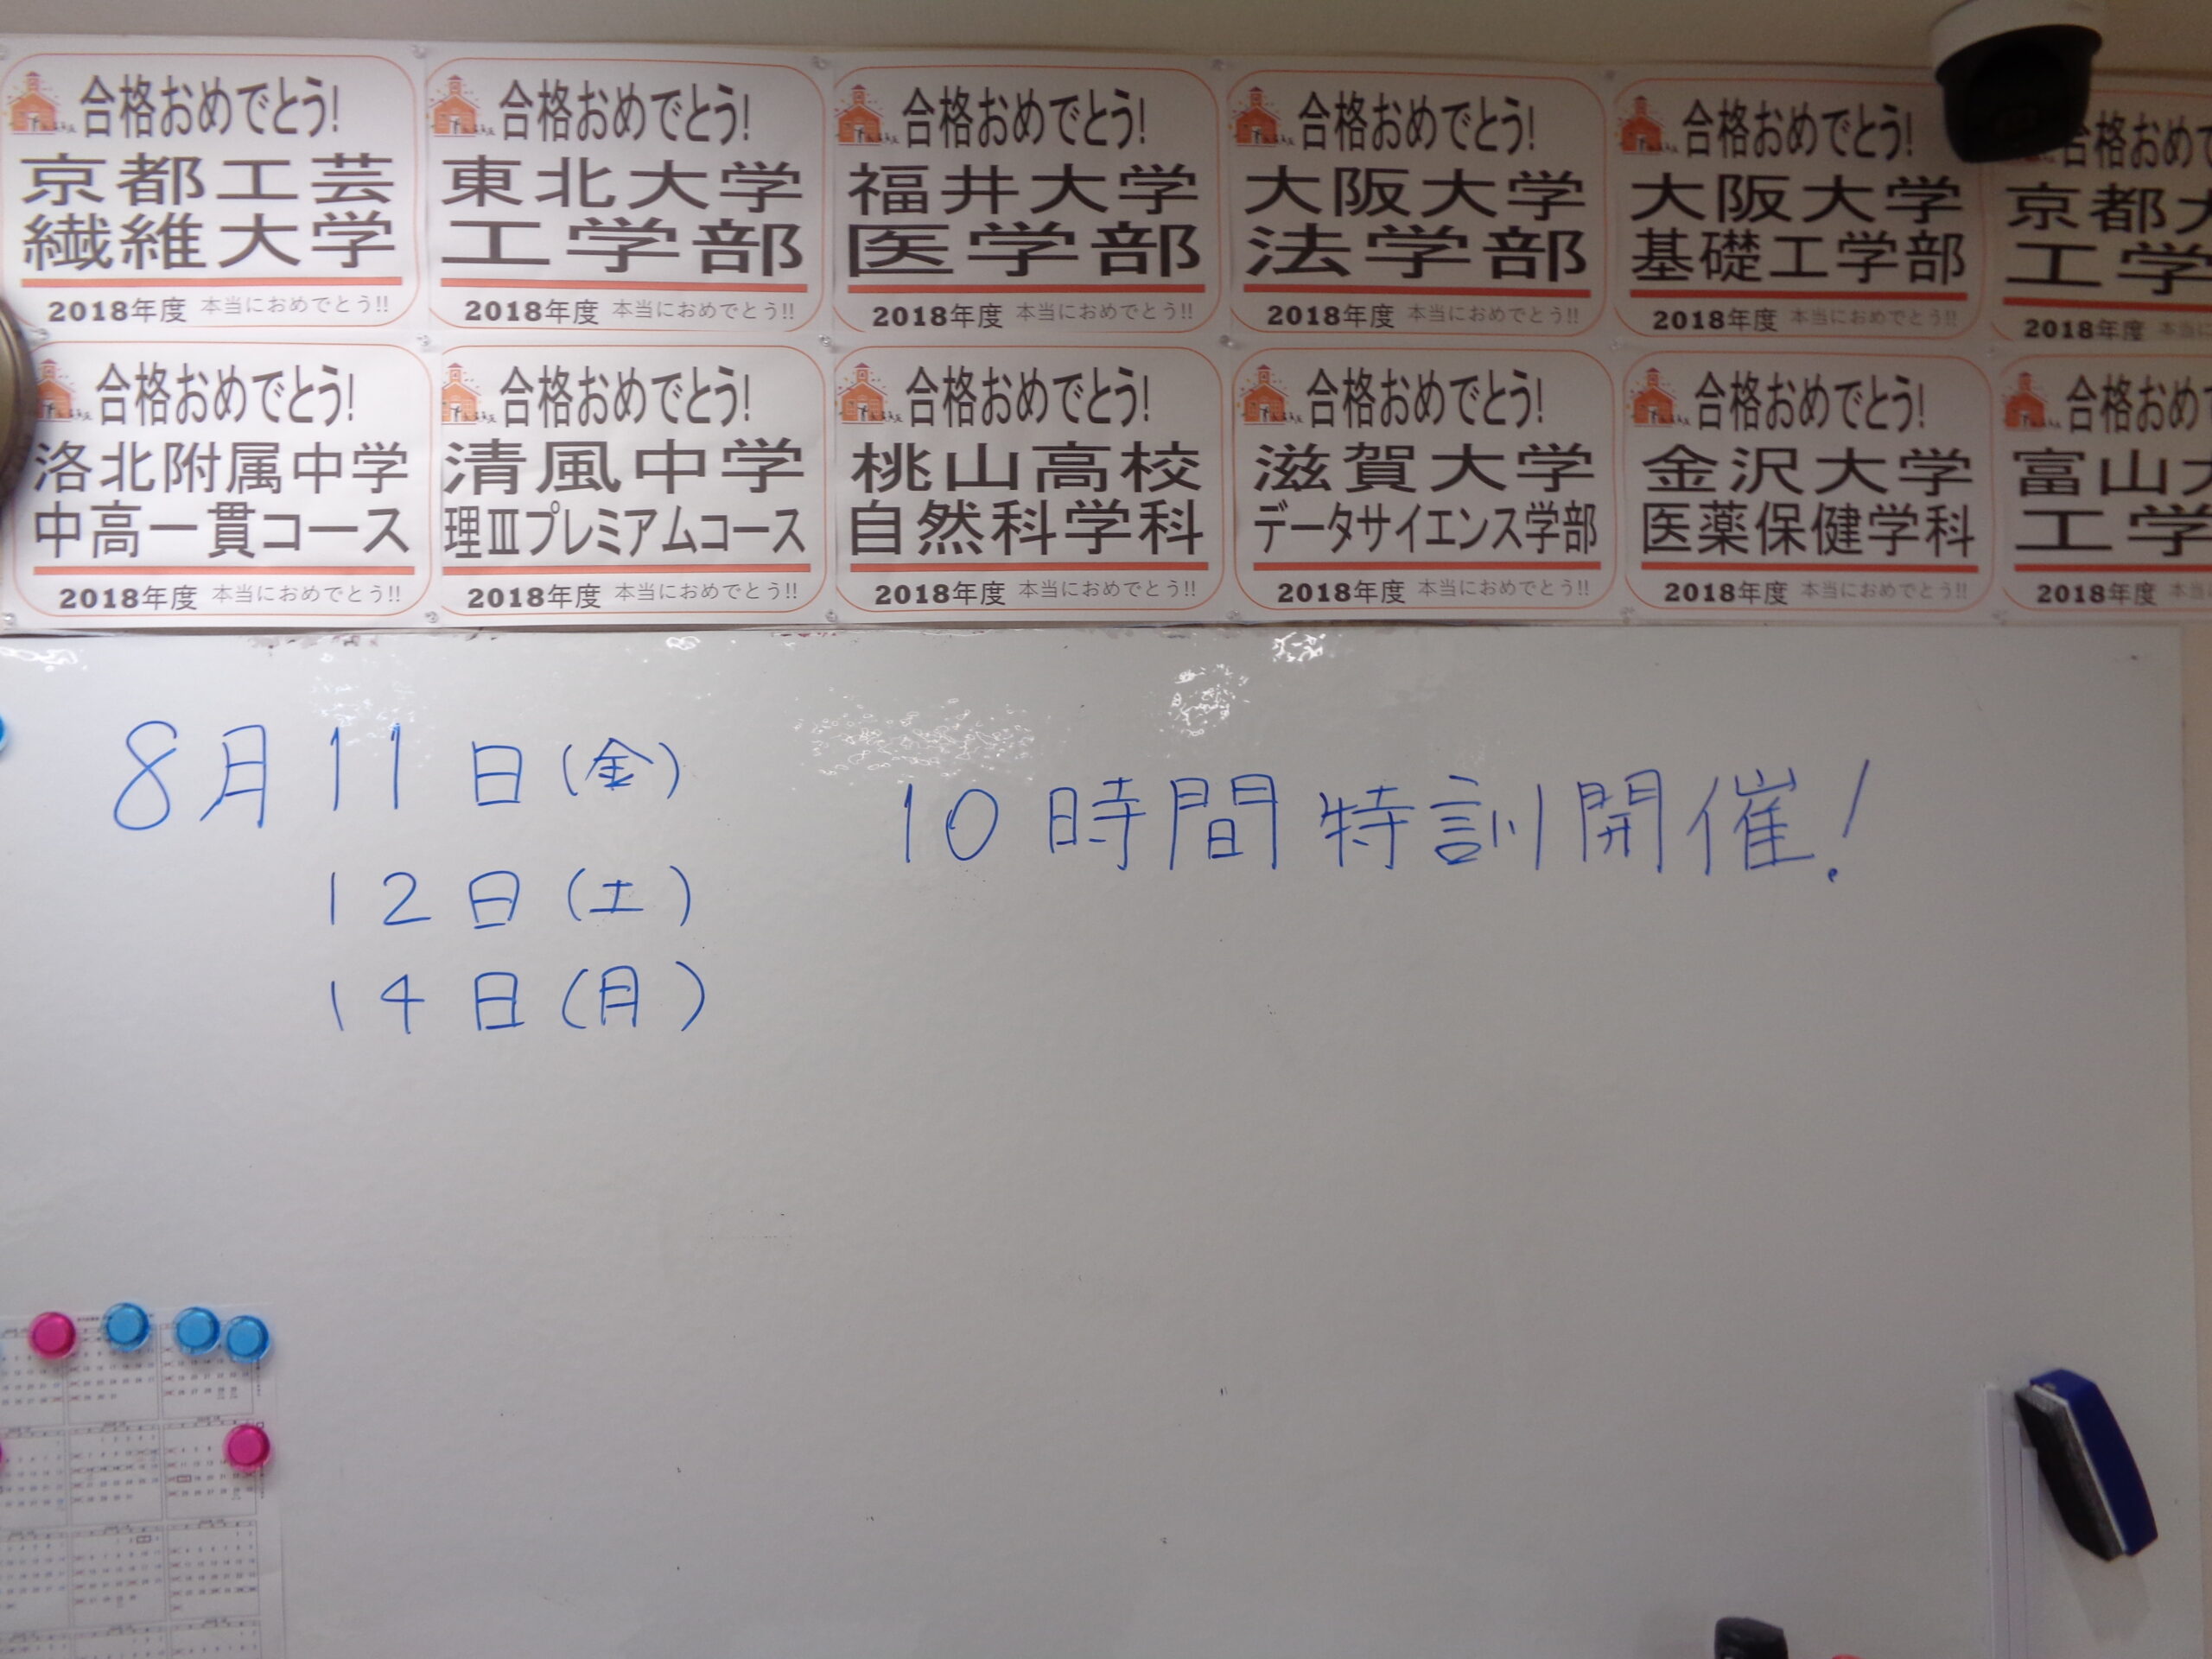 合格おめでとう!
京都工芸
繊維大学
2018年度 本当におめでとう!!
合格おめでとう!
東北大学
工学部
2018年度 本当におめでとう!!
合格おめでとう!
福井大学
医学部
2018年度 本当におめでとう!!
合格おめでとう!
大阪大学
法学部
2018年度 本当におめでとう!!
合格おめでとう!
大阪大学
基礎工学部
2018年度 本当におめでとう!!
合格おめで
京都大
工学
2018年度 本当に
合格おめでとう!
洛北附属中学
中高一貫コース
2018年度 本当におめでとう!!
合格おめでとう!
清風中学
理Ⅲプレミアムコース
2018年度 本当におめでとう!!
合格おめでとう!
桃山高校
自然科学科
2018年度 本当におめでとう!!
合格おめでとう!
滋賀大学
データサイエンス学部
2018年度 本当におめでとう!!
合格おめでとう!
金沢大学
医薬保健学科
2018年度 本当におめでとう!!
合格おめ
富山大
工学
2018年度 本当に
8月11日(金)
12日(土)
14日(月)
10時間特訓開催!